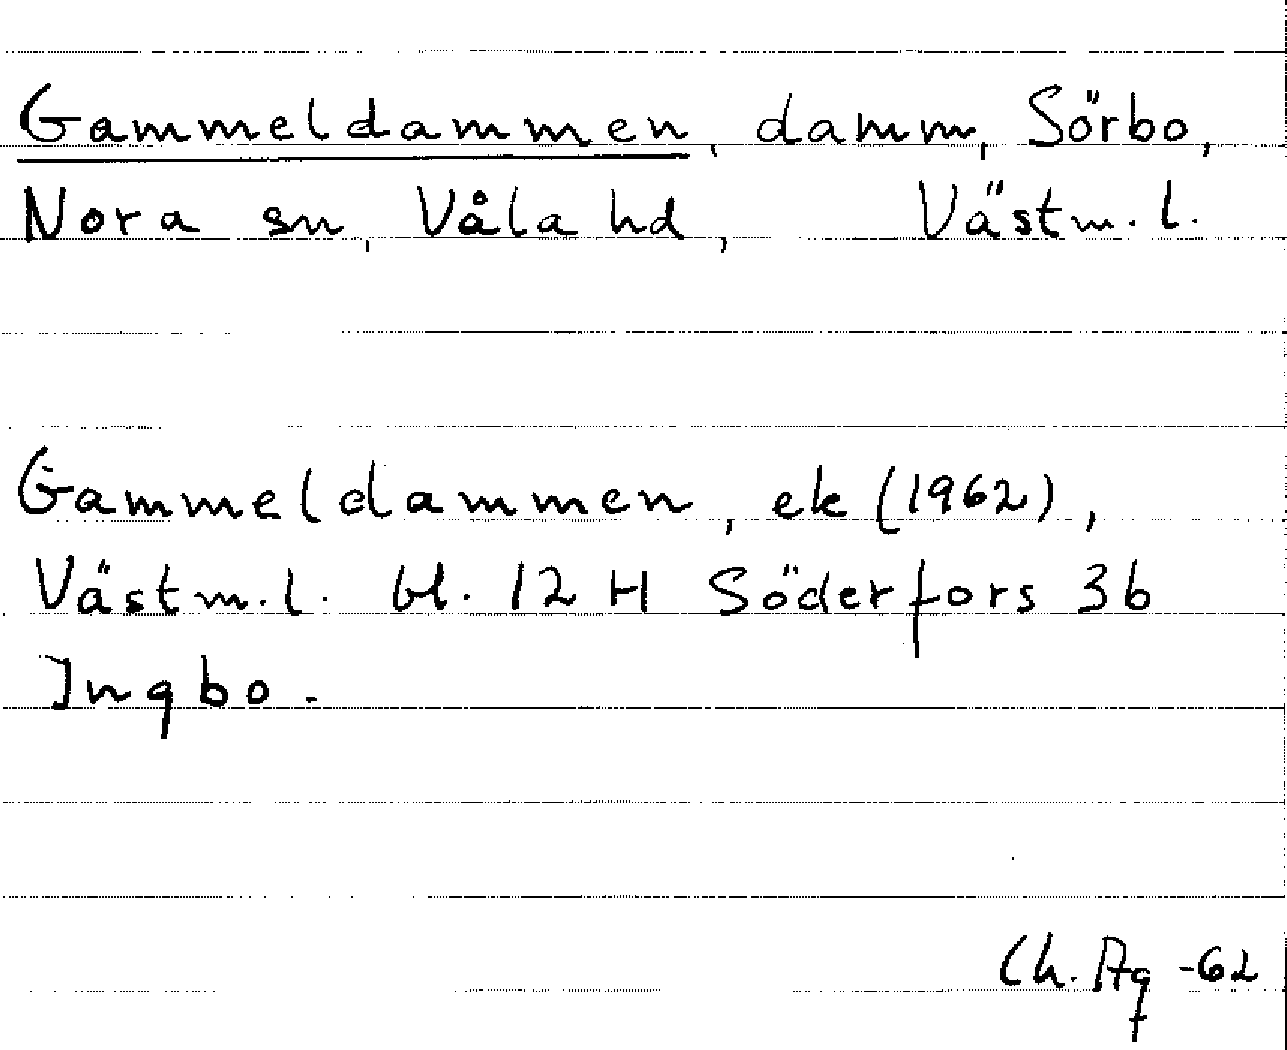 Gammeldammen, damm, Sörbo,
Nora sn, Våla hd, Västm. l.
Gammeldammen, ek (1962),
Västm. l. bl. 12 H Söderfors 3b
Ingbo.
Ch. Ag -62